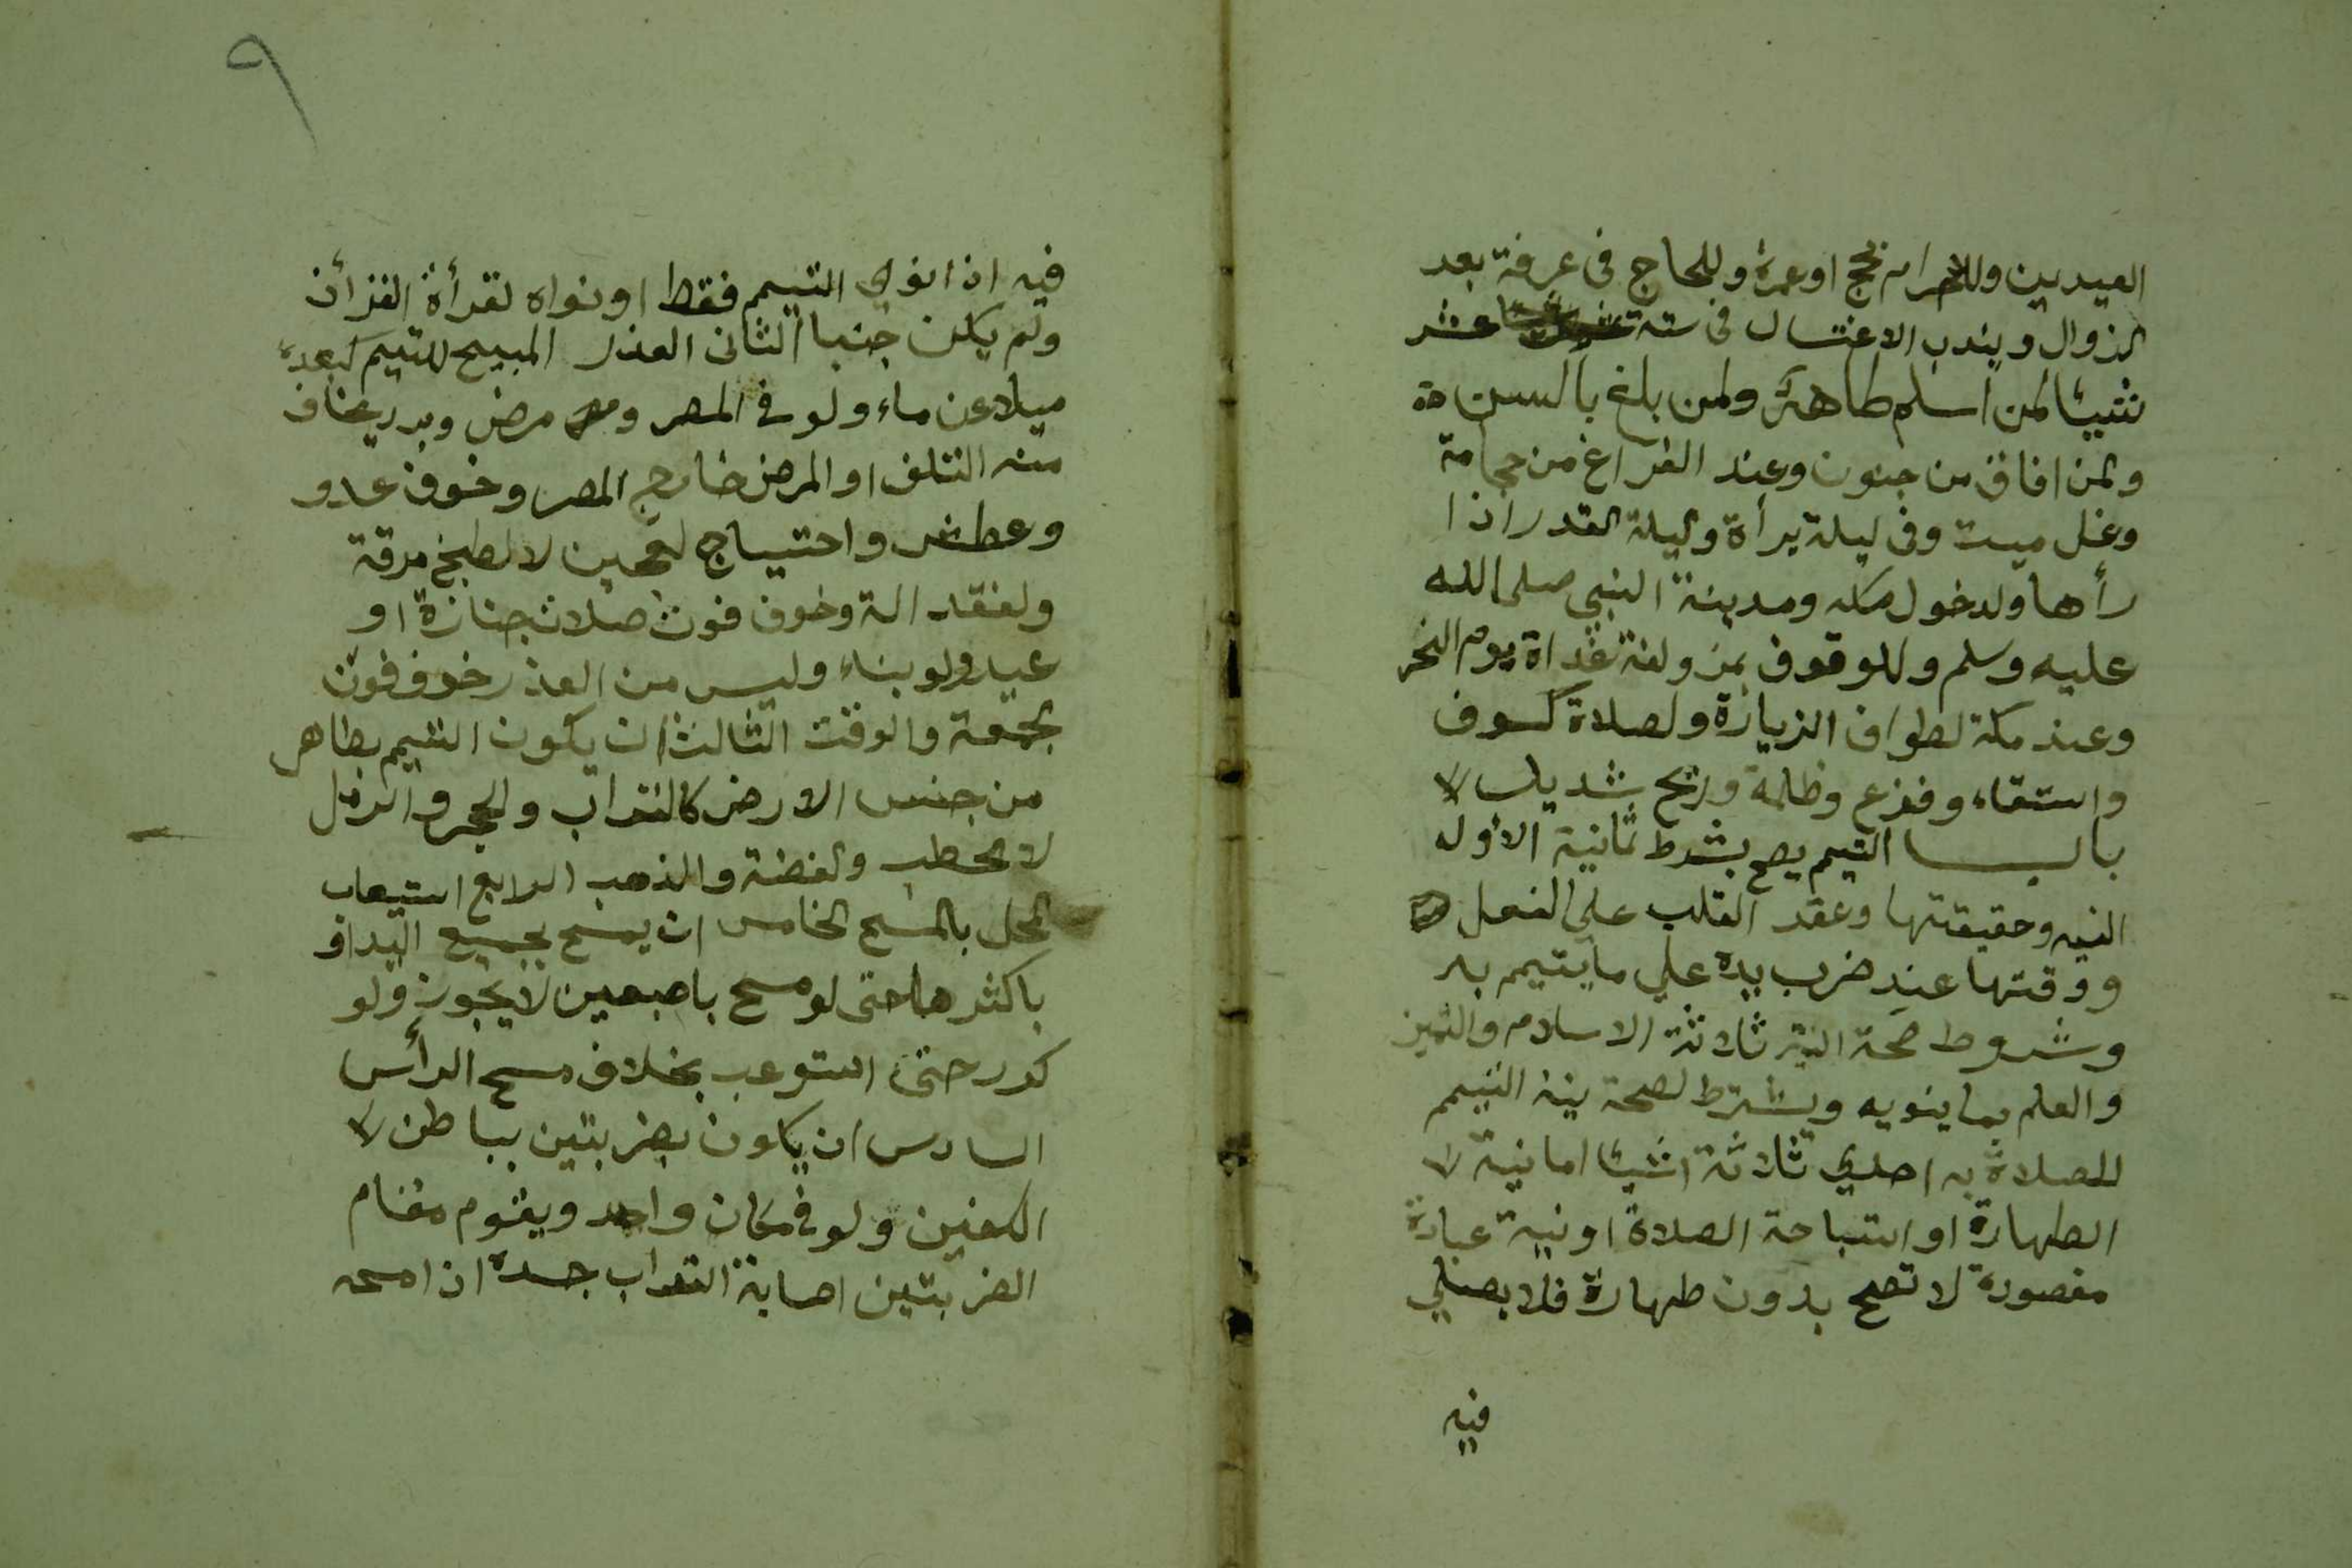 العيدين وللاحرام بحج او عمرة وللحاج فى عرفة بعد
الزوال ويندب الاغتسال فى ستة عشر
شيئا لمن اسلم طاهرا ولمن بلغ بالسن
ولمن افاق من جنون وعند الفراغ من حجامة
وغسل ميت وفى ليلة برأة وليلة القدر اذا
رأها ولدخول مكه ومدينة النبي صلى الله
عليه وسلم وللوقوف بمزولفة غداة يوم النحر
وعند مكة لطواف الزيارة ولصلاة كسوف
واستقاء وفزع وظلمة وريح شديد
باب التيمم يصح بشرط ثمانية الاول
النيه وحقيقتها وعقد القلب على الفعل
ووقتها عند ضرب يده على ما يتيمم به
وشروط صحة النية ثلاثة الاسلام والتميز
والعلم بما ينويه ويشترط لصحة نية التيمم
للصلاة به احدي ثلاثة اشيئا اما نية
الطهارة او استباحة الصلاة او نية عبادة
مقصودة لا تصح بدون طهارة فلا يصلي
فيه
٩
فيه اذا نوي التيمم فقط او نواه لقرأة القرأن
ولم يكن جنبا الثانى العذر المبيح للتيمم كبعده
ميلا عن ماء ولو فى المصر ومرض وبرد يخاف
منه التلف او المرض خارج المصر وخوف عدو
وعطش واحتياج لعجين لا لطبخ مرقة
ولفقد الة وخوف فوت صلات جنازة او
عيد ولو بناء وليس من العذر خوف فوت
جمعة والوقت الثالث ان يكون التيمم بطاهر
من جنس الارض كالتراب والحجر والرمل
لا الحطب والفضة والذهب الرابع استيعاب
المحل بالمسح الخامس ان يمسح بجميع اليد او
باكثرها حتى لو مسح باصبعين لا يجوز ولو
كرر حتى استوعب بخلاف مسح الرأس
السادس ان يكون بضربتين بباطن
الكفين ولو فى مكان واحد ويقوم مقام
الضربتين اصابة التراب جسده اذا مسحه